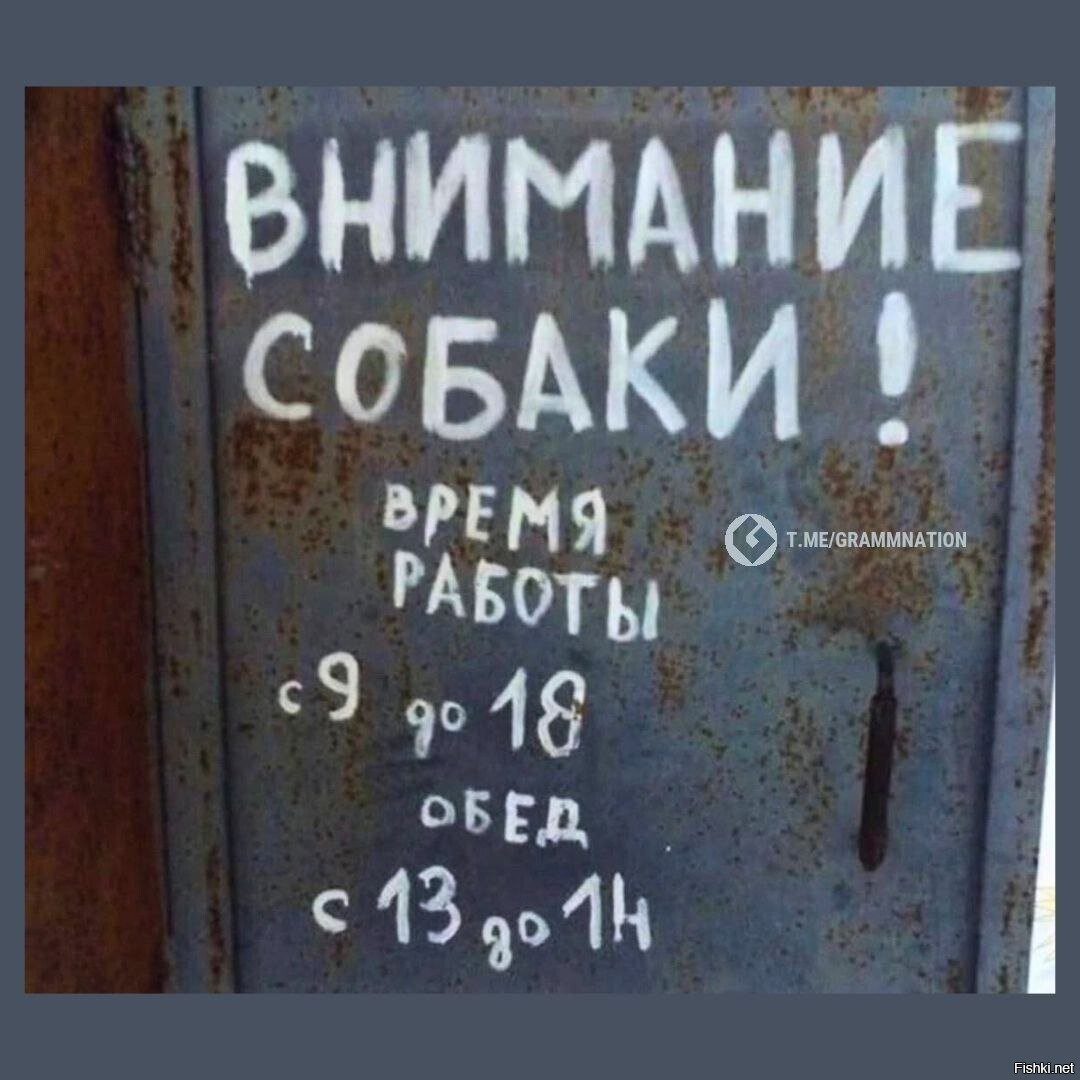 ВНИМАНИЕ
СОБАКИ !
ВРЕМЯ
РАБОТЫ
с 9 до 18
ОБЕД
с 13 до 14
T.ME/GRAMMNATION
Fishki.net